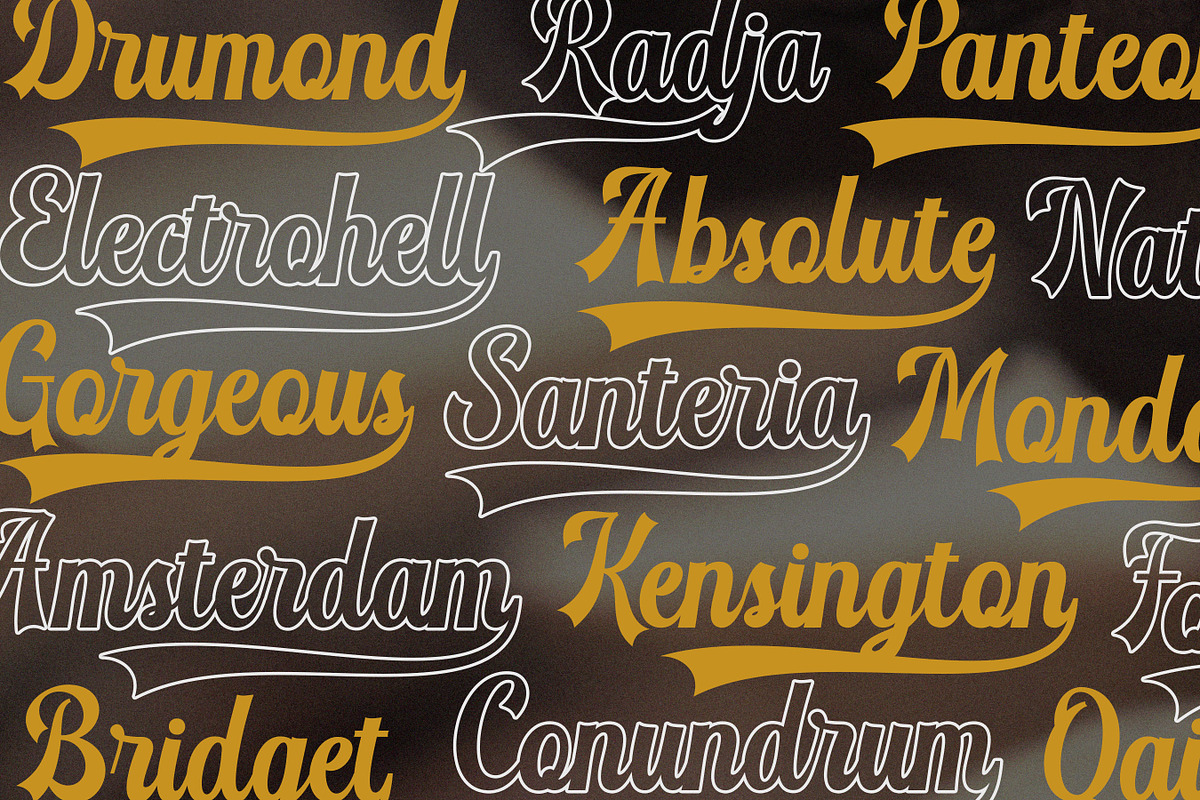 Drumond Radja Panteon
Electrohell Absolute Nat
Gorgeous Santeria Monda
Amsterdam Kensington Fa
Bridget Conundrum Oai